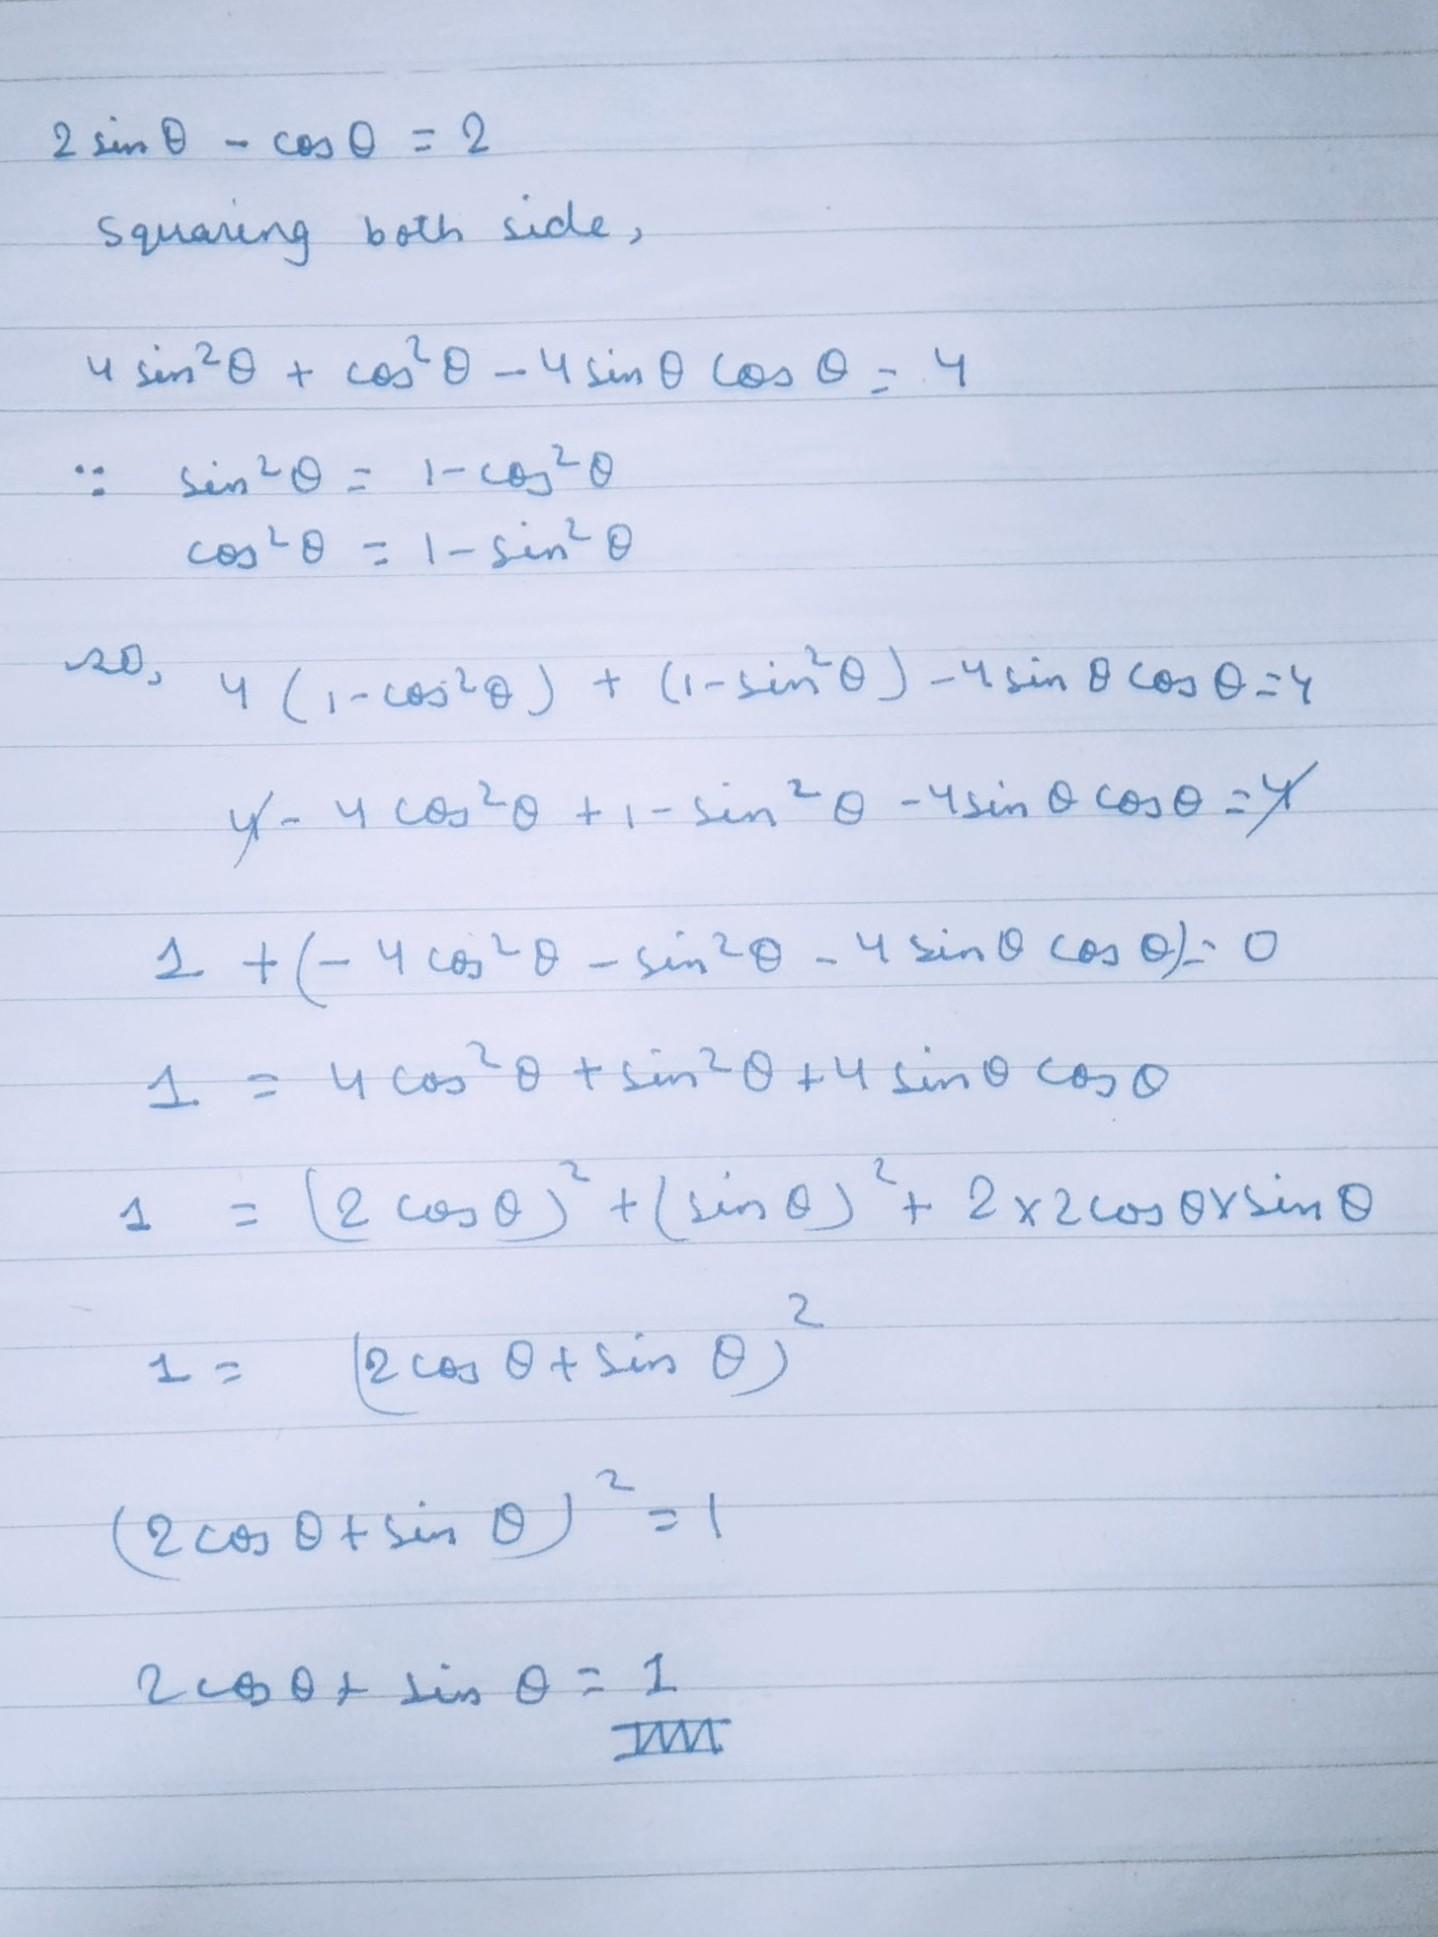 2 sin θ - cos θ = 2
Squaring both side,
4 sin²θ + cos²θ - 4 sin θ cos θ = 4
∵ sin²θ = 1 - cos²θ
cos²θ = 1 - sin²θ
so, 4 (1 - cos²θ) + (1 - sin²θ) - 4 sin θ cos θ = 4
4 - 4 cos²θ + 1 - sin²θ - 4 sin θ cos θ = 4
1 + (- 4 cos²θ - sin²θ - 4 sin θ cos θ) = 0
1 = 4 cos²θ + sin²θ + 4 sin θ cos θ
1 = (2 cos θ)² + (sin θ)² + 2 × 2 cos θ × sin θ
1 = (2 cos θ + sin θ)²
(2 cos θ + sin θ)² = 1
2 cos θ + sin θ = 1